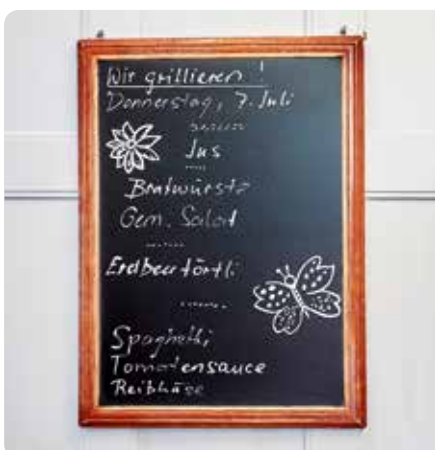 Wir grillieren!
Donnerstag, 7. Juli
Jus
Bratwürste
Gem. Salat
Erdbeertörtli
Spaghetti
Tomatensauce
Reibkäse